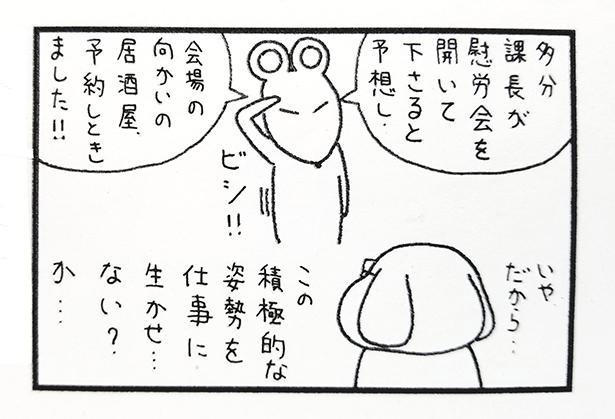 多分
課長が
慰労会を
開いて
下さると
予想し、
会場の
向かいの
居酒屋、
予約しとき
ました!!
ビシ!!
いや
だから…
この
積極的な
姿勢を
仕事に
生かせ…
ない?
か…